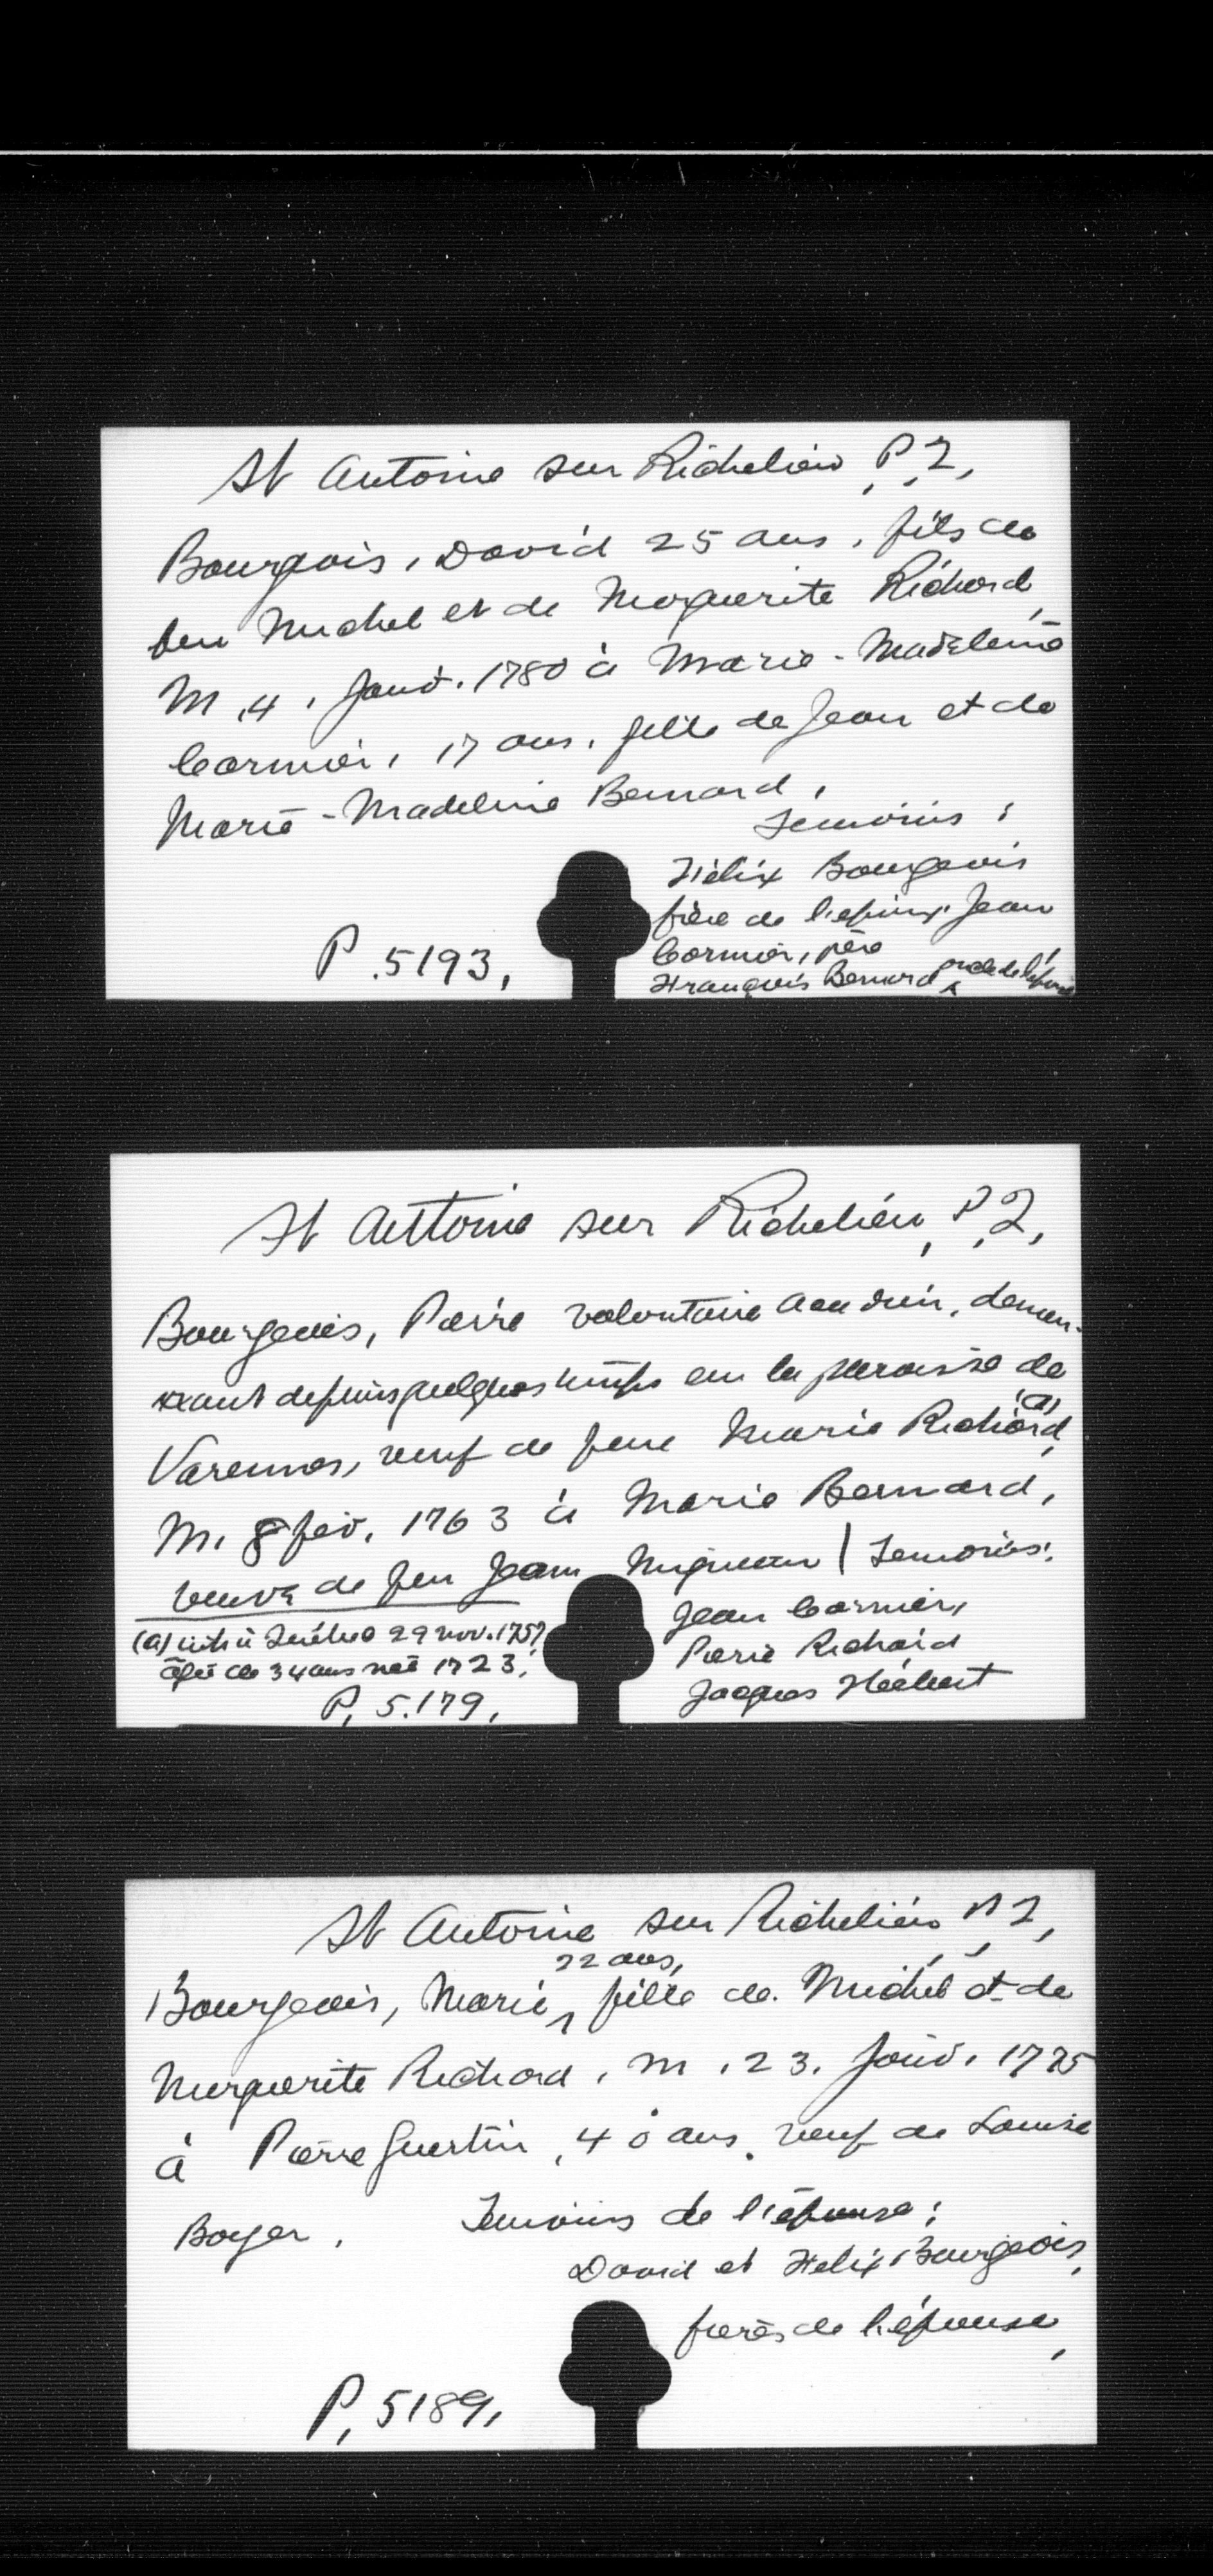 St Antoine sur Richelieu, P.Q,
Bourgeois, David 25 ans, fils de
feu Michel et de Marguerite Richard,
M, 4, Janv. 1780 à Marie-Madeleine
Cormier, 17 ans, fille de Jean et de
Marie-Madeleine Bernard,
Temoins :
Félix Bourgeois
frère de l'epoux Jean
Cormier, père
François Bernard oncle de l'épouse
P. 5193,
St Antoine sur Richelieu, P.Q,
Bourgeois, Pierre volontaire acadien, demeu-
rant depuis quelques temps en la paroisse de
Varennes, veuf de feue Marie Richard (a),
M. 8 fev. 1763 à Marie Bernard,
veuve de feu Jean Migneau | Temoins:
Jean Cormier,
Pierre Richard
Jacques Hébert
(a) inh à Québec 29 nov. 1757
âgée de 34 ans née 1723.
P, 5.179,
St Antoine sur Richelieu, P.Q,
Bourgeois, Marie, 22 ans, fille de Michel et de
Marguerite Richard, M, 23. Janv. 1775
à Pierre Guertin, 40 ans, veuf de Louise
Boyer. Temoins de l'épouse:
David et Felix Bourgeois,
freres de l'épouse,
P, 5189,